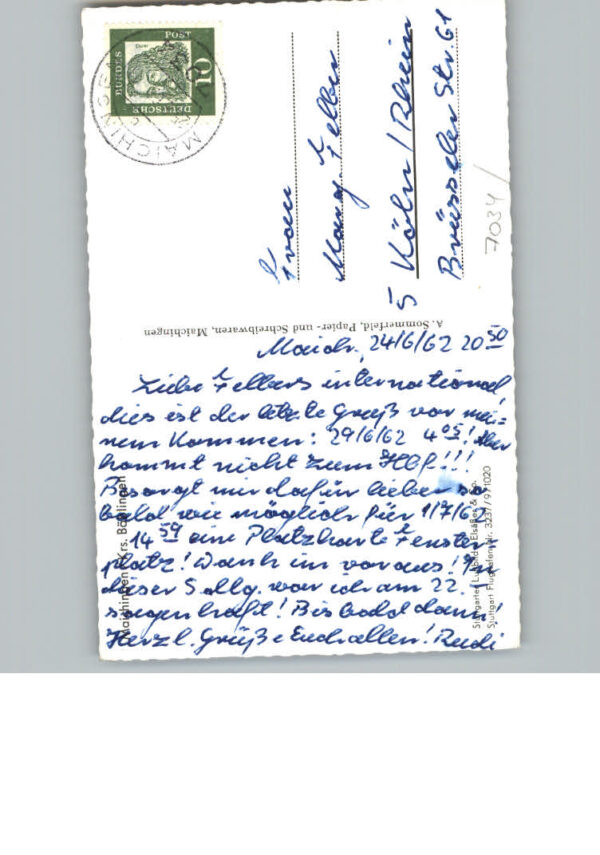 DEUTSCHE BUNDESPOST
10
MAICHINGEN
Frau
Marg. Felber
5 Köln/Rhein
Brüsseler Str. 61
7034
A. Sommerfeld, Papier- und Schreibwaren, Maichingen
Maich., 24/6/62 20 50
Liebe Felbers international,
dies ist der letzte Gruß vor mei=
nem Kommen: 29/6/62 4 05! Aber
kommt nicht zum Hbf!!!
Besorgt mir dafür lieber so
bald wie möglich für 1/7/62
14 59 eine Platzkarte Fenster
platz! Dank im voraus! In
dieser war ich am 22.
sagenhaft! Bis bald dann
Herzl. Grüße Euch allen! Rudi
Maichingen, Krs. Böblingen
Stuttgarter Luftbild Elsäßer & Co.
Stuttgart Flughafen Nr. 3237/9/1020